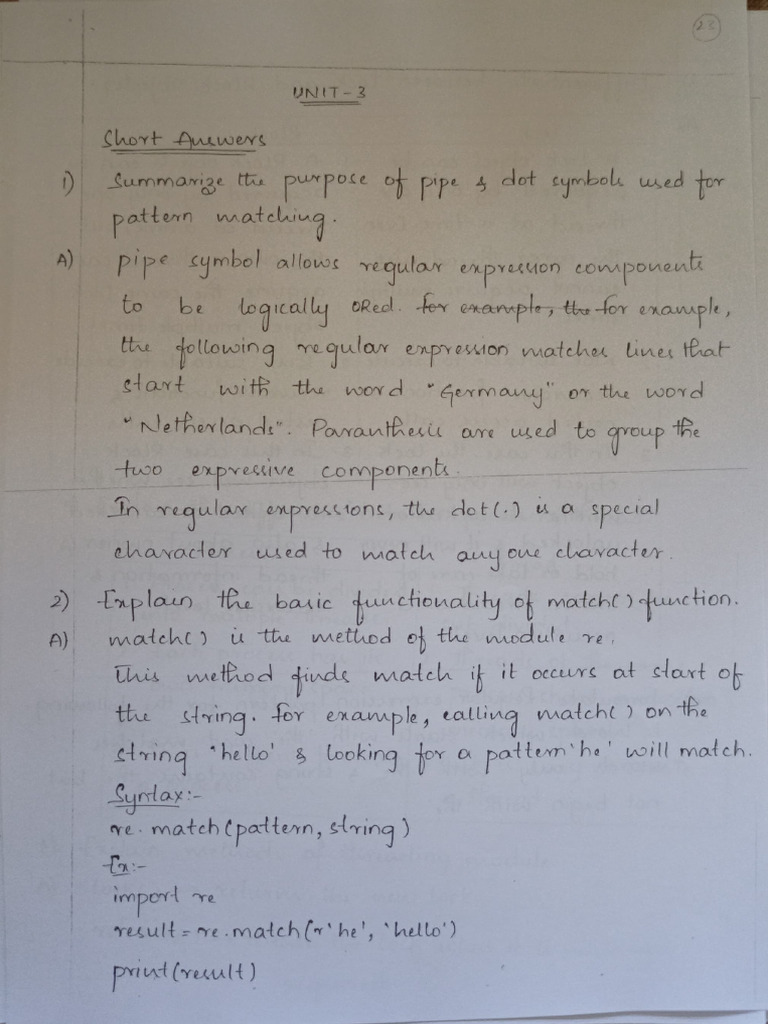 UNIT-3
Short Answers
1) Summarize the purpose of pipe & dot symbols used for
pattern matching.
A) pipe symbol allows regular expression components
to be logically ORed. for example, the for example,
the following regular expression matches lines that
start with the word "Germany" or the word
"Netherlands". Paranthesis are used to group the
two expressive components.
In regular expressions, the dot(.) is a special
character used to match any one character.
2) Explain the basic functionality of match() function.
A) match() is the method of the module re.
This method finds match if it occurs at start of
the string. for example, calling match() on the
string 'hello' & looking for a pattern 'he' will match.
Syntax:-
re.match(pattern, string)
Ex:-
import re
result = re.match(r'he', 'hello')
print(result)